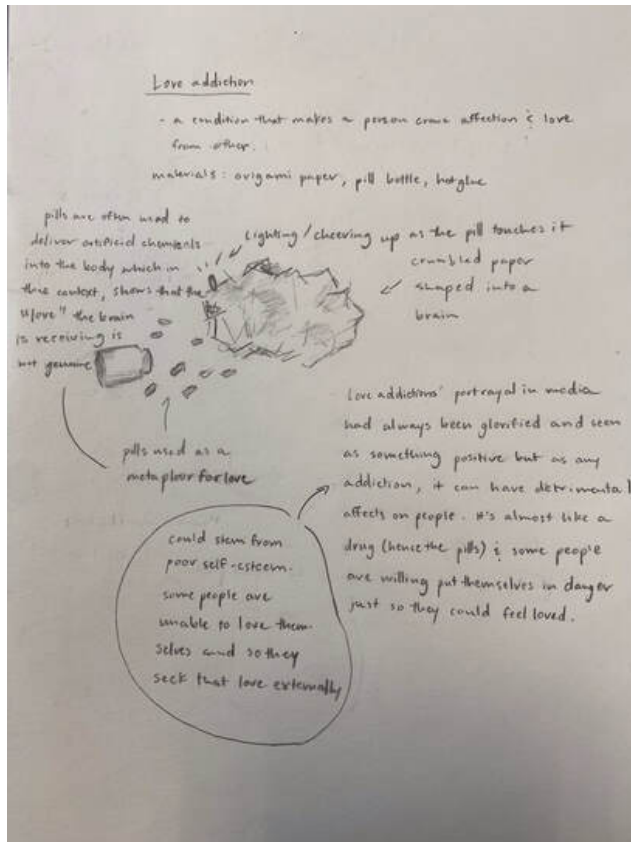 Love addiction
- a condition that makes a person crave affection & love
from other.
materials: origami paper, pill bottle, hot glue
pills are often used to
deliver artificial chemicals
into the body which in
this context, shows that the
"love" the brain
is receiving is
not genuine
Lighting/cheering up as the pill touches it
crumbled paper
shaped into a
brain
pills used as a
metaphor for love
Love addictions' portrayal in media
had always been glorified and seen
as something positive but as any
addiction, it can have detrimental
affects on people. it's almost like a
drug (hence the pills) & some people
are willing put themselves in danger
just so they could feel loved.
could stem from
poor self-esteem.
some people are
unable to love them-
selves and so they
seek that love externally